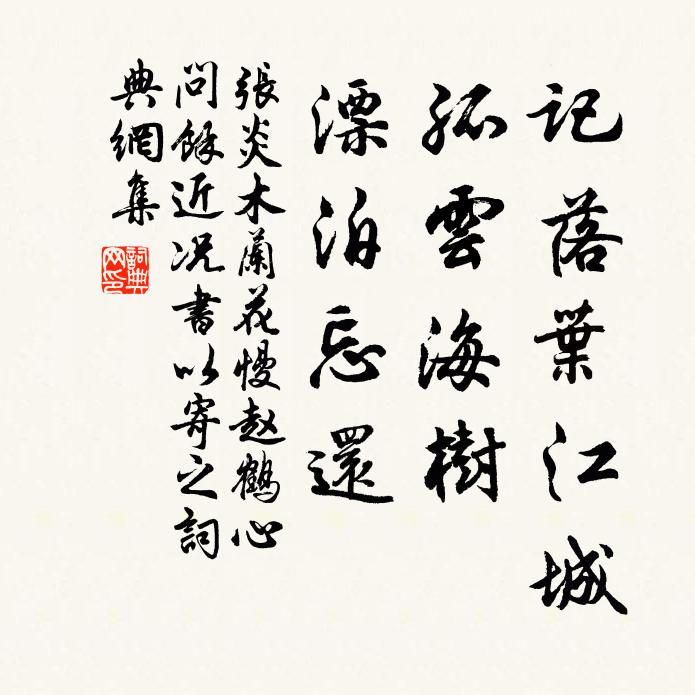 記落葉江城
孤雲海樹
漂泊忘還
張炎木蘭花慢赵鶴心
問餘近況書以寄之詞
典網集
詞典網印